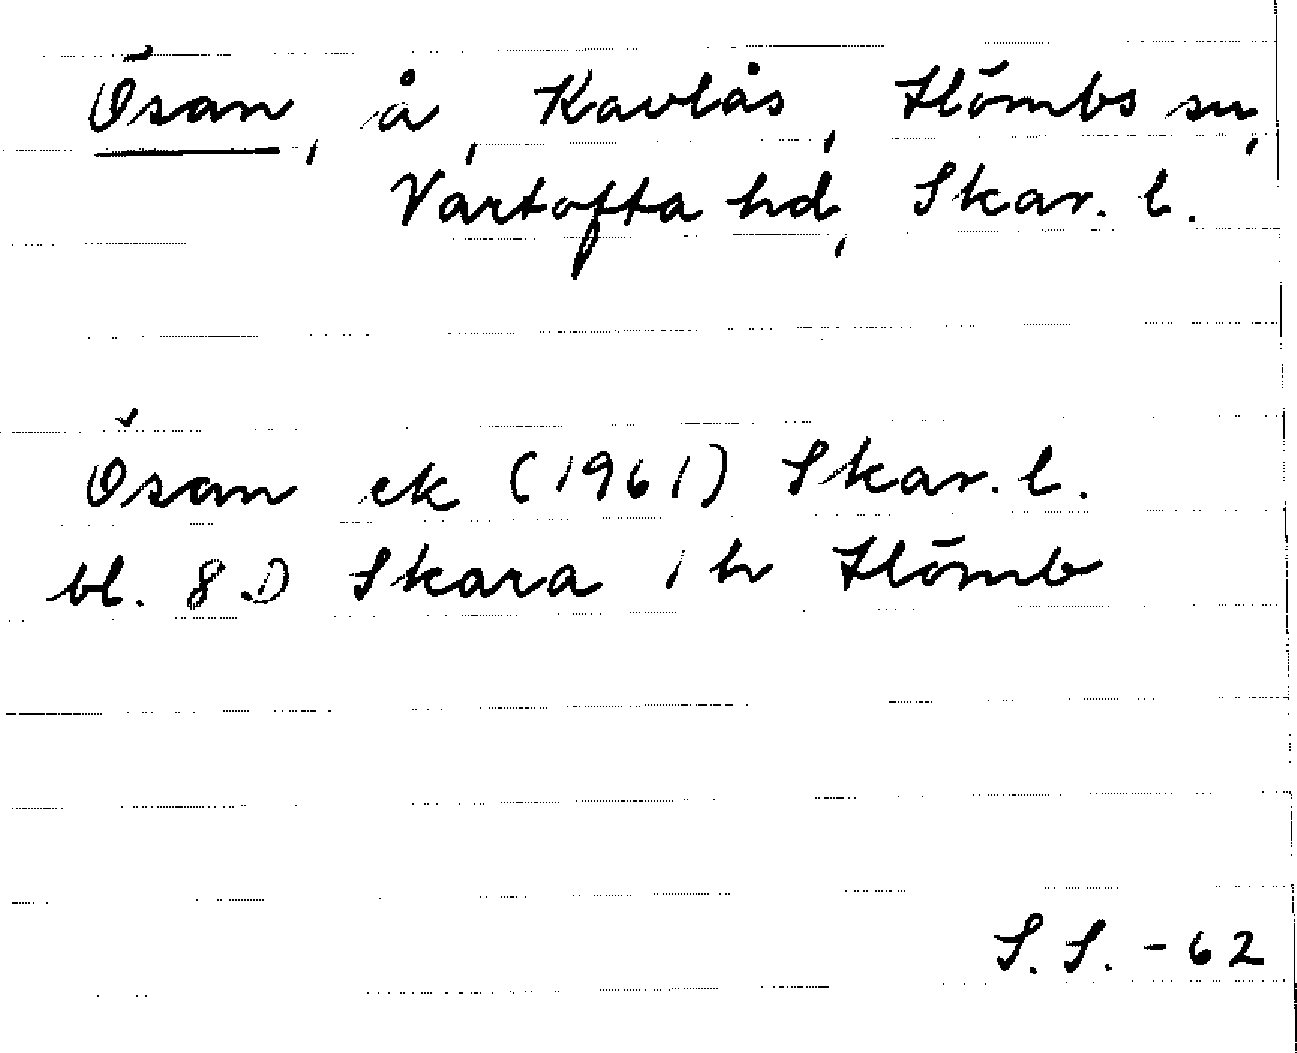 Ösan, å, Kavlås, Hömbs sn,
Vartofta hd, Skar. l.
Ösan ek (1961) Skar. l.
bl. 8 D Skara i h Hömb
S. S. - 62